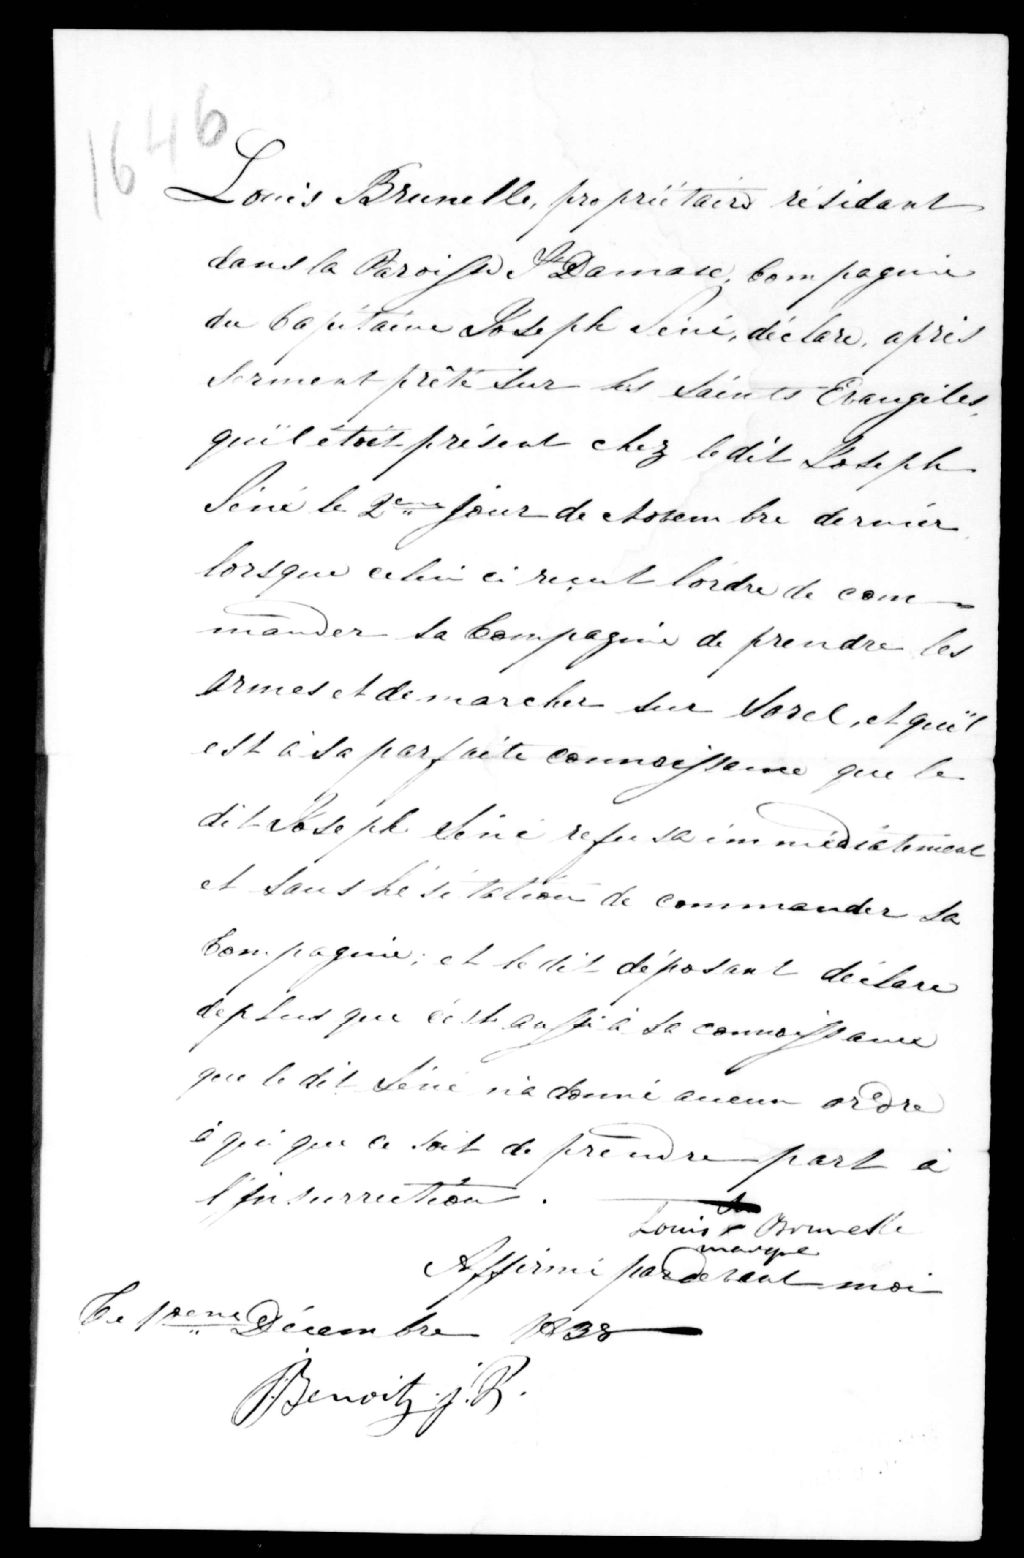 1646
Louis Brunelle, propriétaire résidant
dans la Paroisse St Damase, Compagnie
du Capitaine Joseph Séné, déclare, après
serment prêté sur les Saints Evangiles,
qu'il étoit présent chez ledit Joseph
Séné le 2eme jour de Novembre dernier,
lorsque celui ci reçut l'ordre de com-
mander sa Compagnie de prendre les
armes et de marcher sur Sorel, et qu'il
est à sa parfaite connoissance que le
dit Joseph Séné refusa immédiatement
et sans hésitation de commander sa
Compagnie; et le dit déposant déclare
de plus que c'est aussi à sa connoissance
que le dit Séné n'a donné aucun ordre
à qui que ce soit de prendre part à
l'Insurrection.
sa
Louis x Brunelle
marque
Affirmé par devant moi
Ce Décembre 1838
Benoit, j. P.